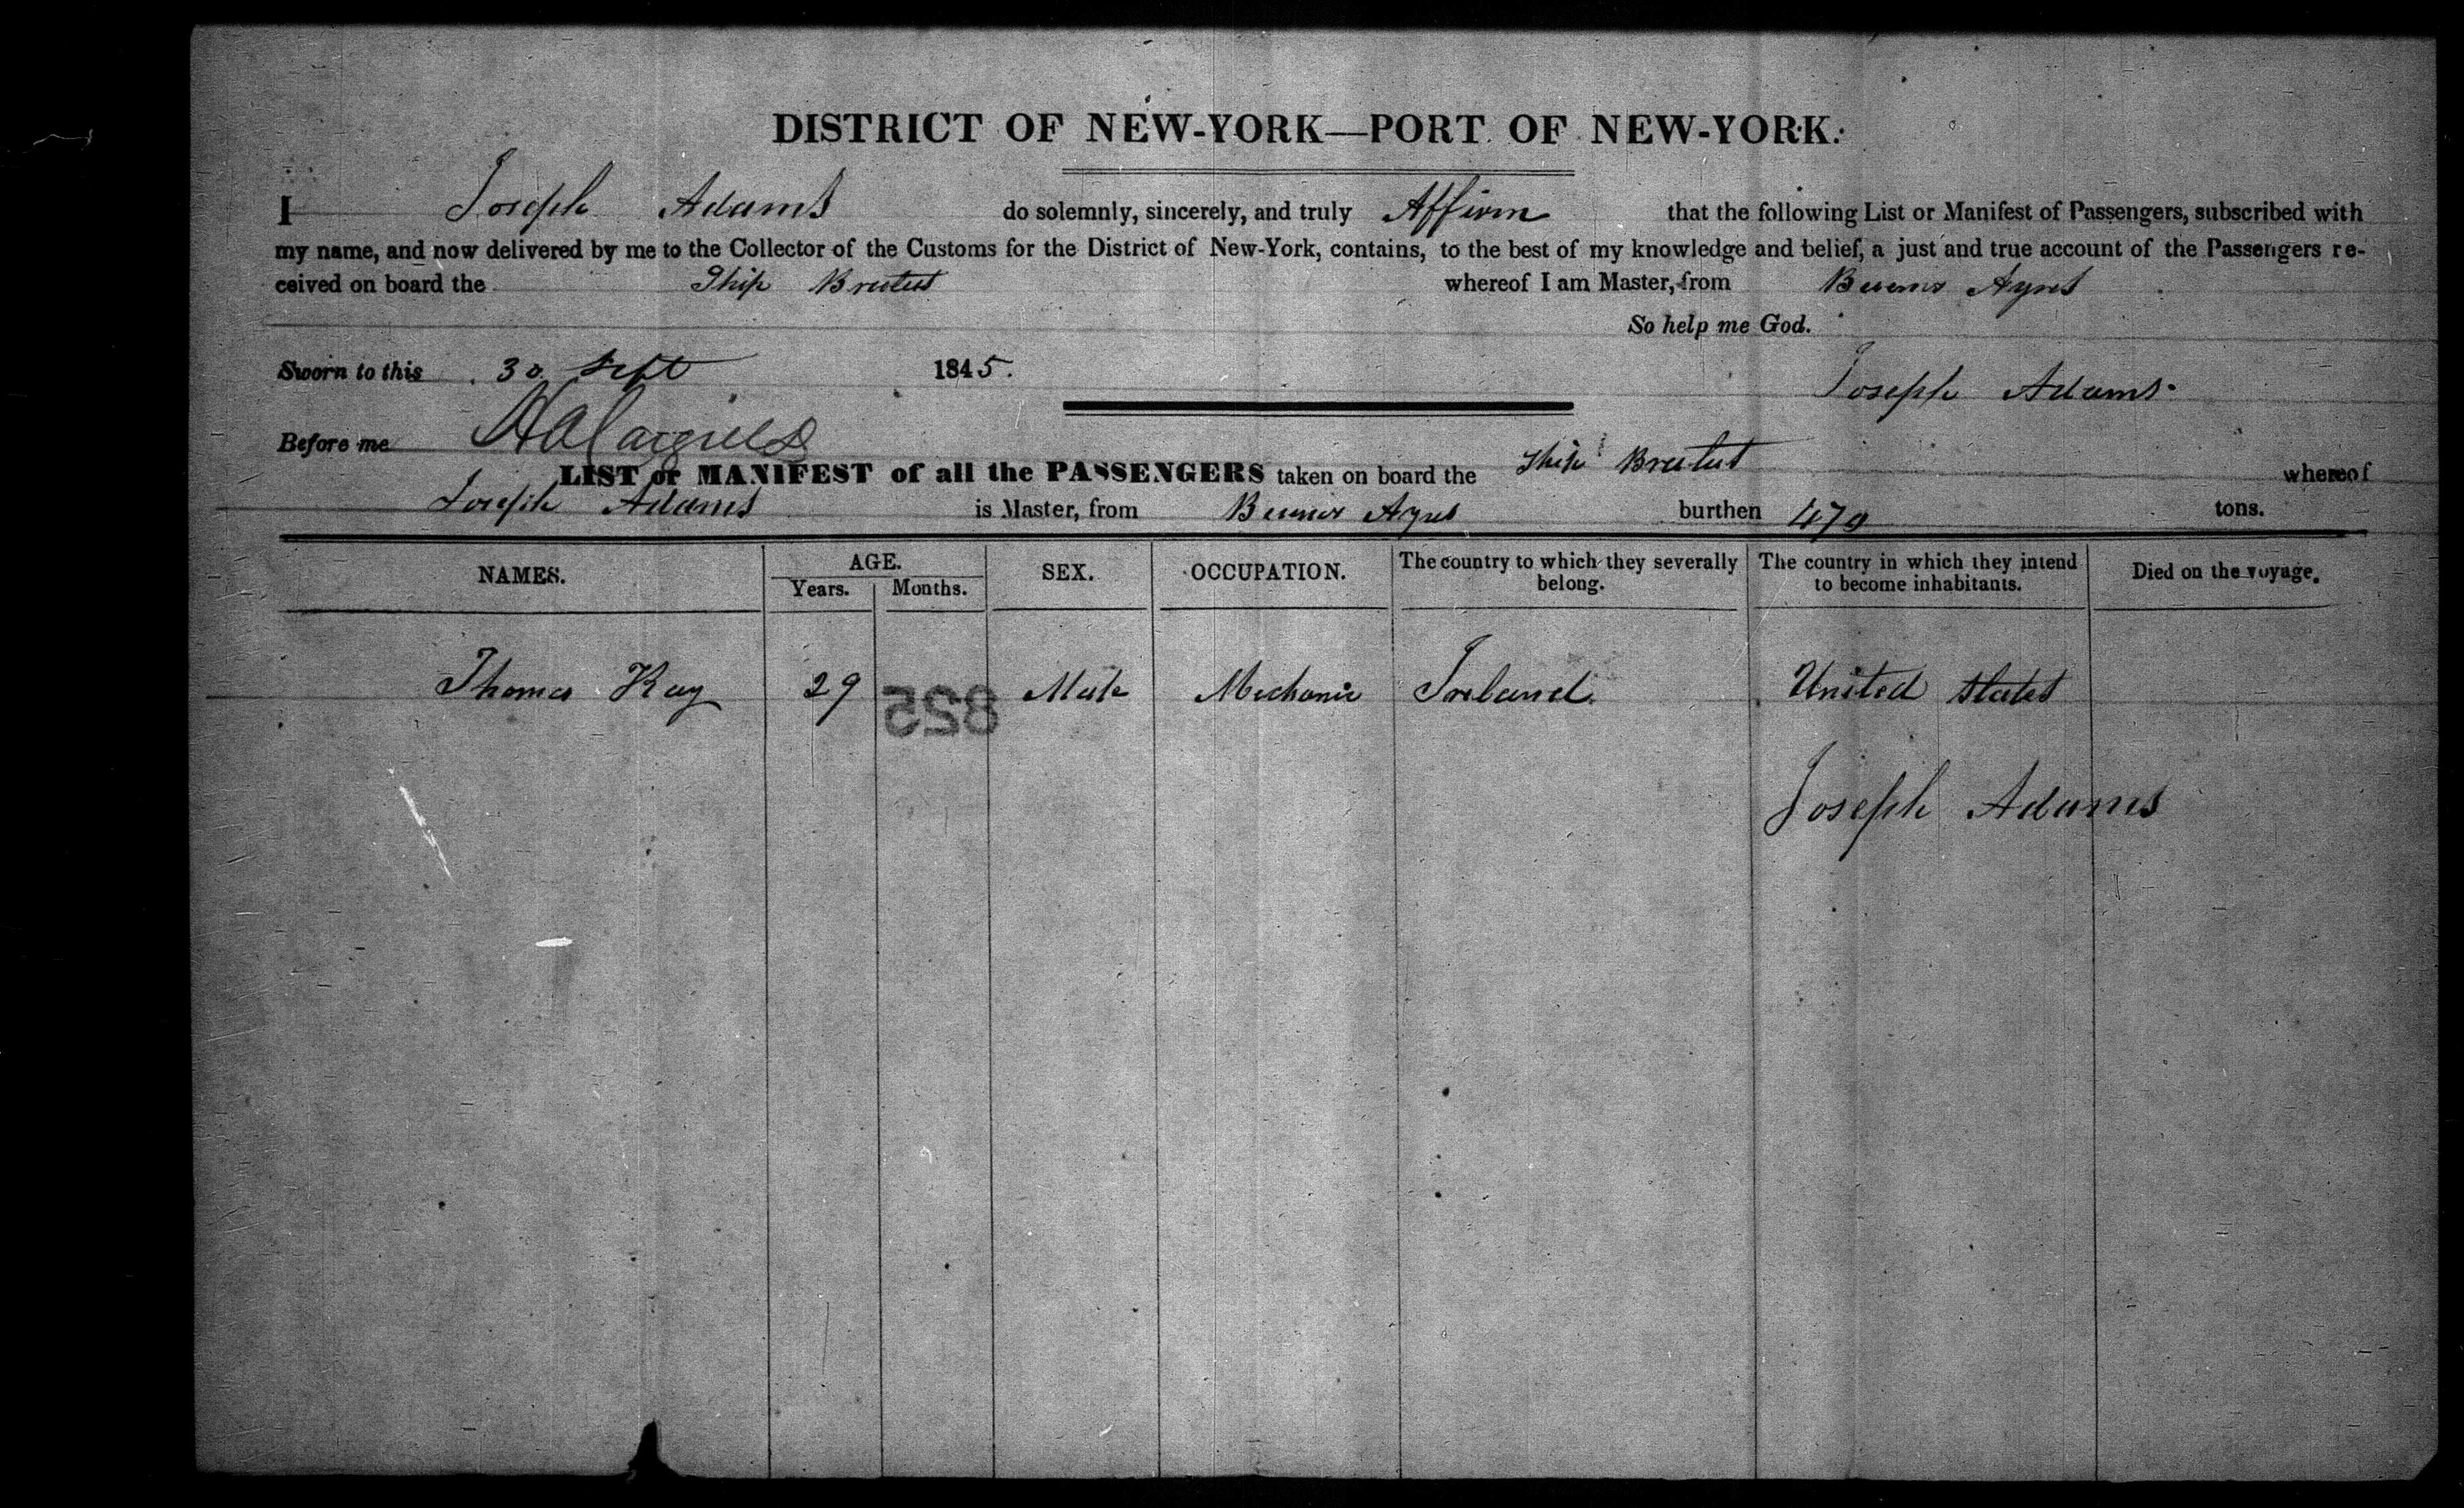 DISTRICT OF NEW-YORK—PORT OF NEW-YORK.
I Joseph Adams do solemnly, sincerely, and truly Affirm that the following List or Manifest of Passengers, subscribed with
my name, and now delivered by me to the Collector of the Customs for the District of New-York, contains, to the best of my knowledge and belief, a just and true account of the Passengers re-
ceived on board the Ship Brutus whereof I am Master, from Buenos Ayres
So help me God.
Sworn to this 30 Sept 1845. Joseph Adams
Before me
LIST or MANIFEST of all the PASSENGERS taken on board the Ship Brutus whereof
Joseph Adams is Master, from Buenos Ayres burthen 470 tons.
NAMES. AGE. Years. Months. SEX. OCCUPATION. The country to which they severally belong. The country in which they intend to become inhabitants. Died on the voyage.
Thomas Kay 29 Male Mechanic Ireland United States
825
Joseph Adams